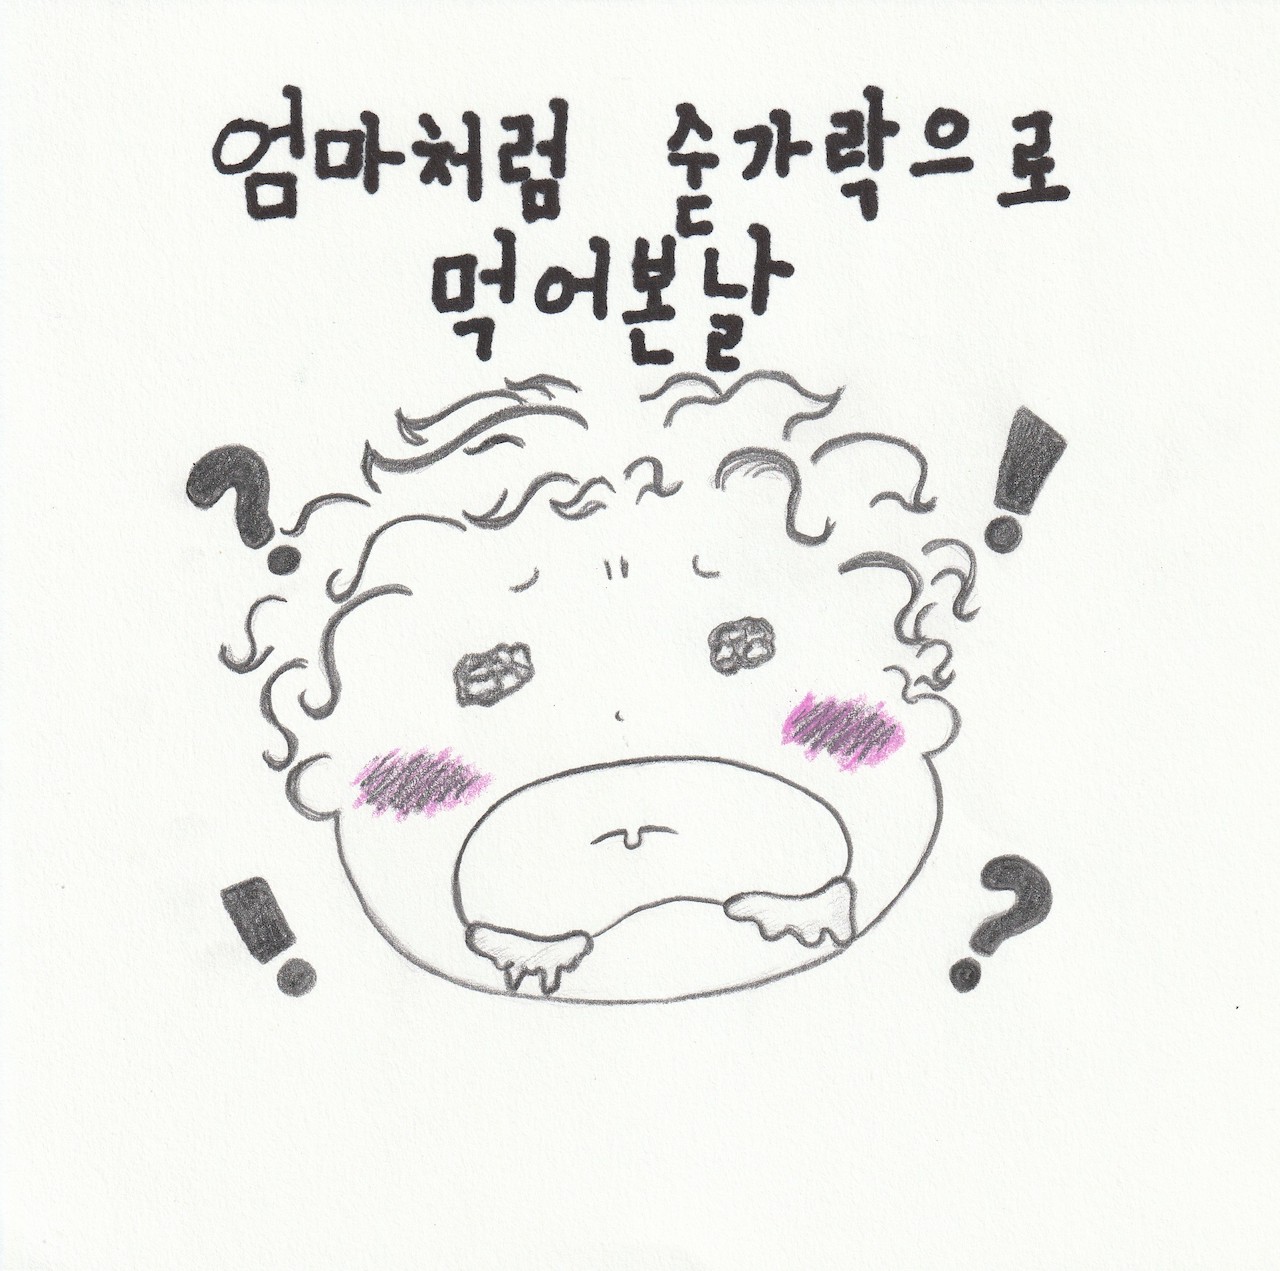 엄마처럼 숟가락으로
먹어본날
? !
! ?